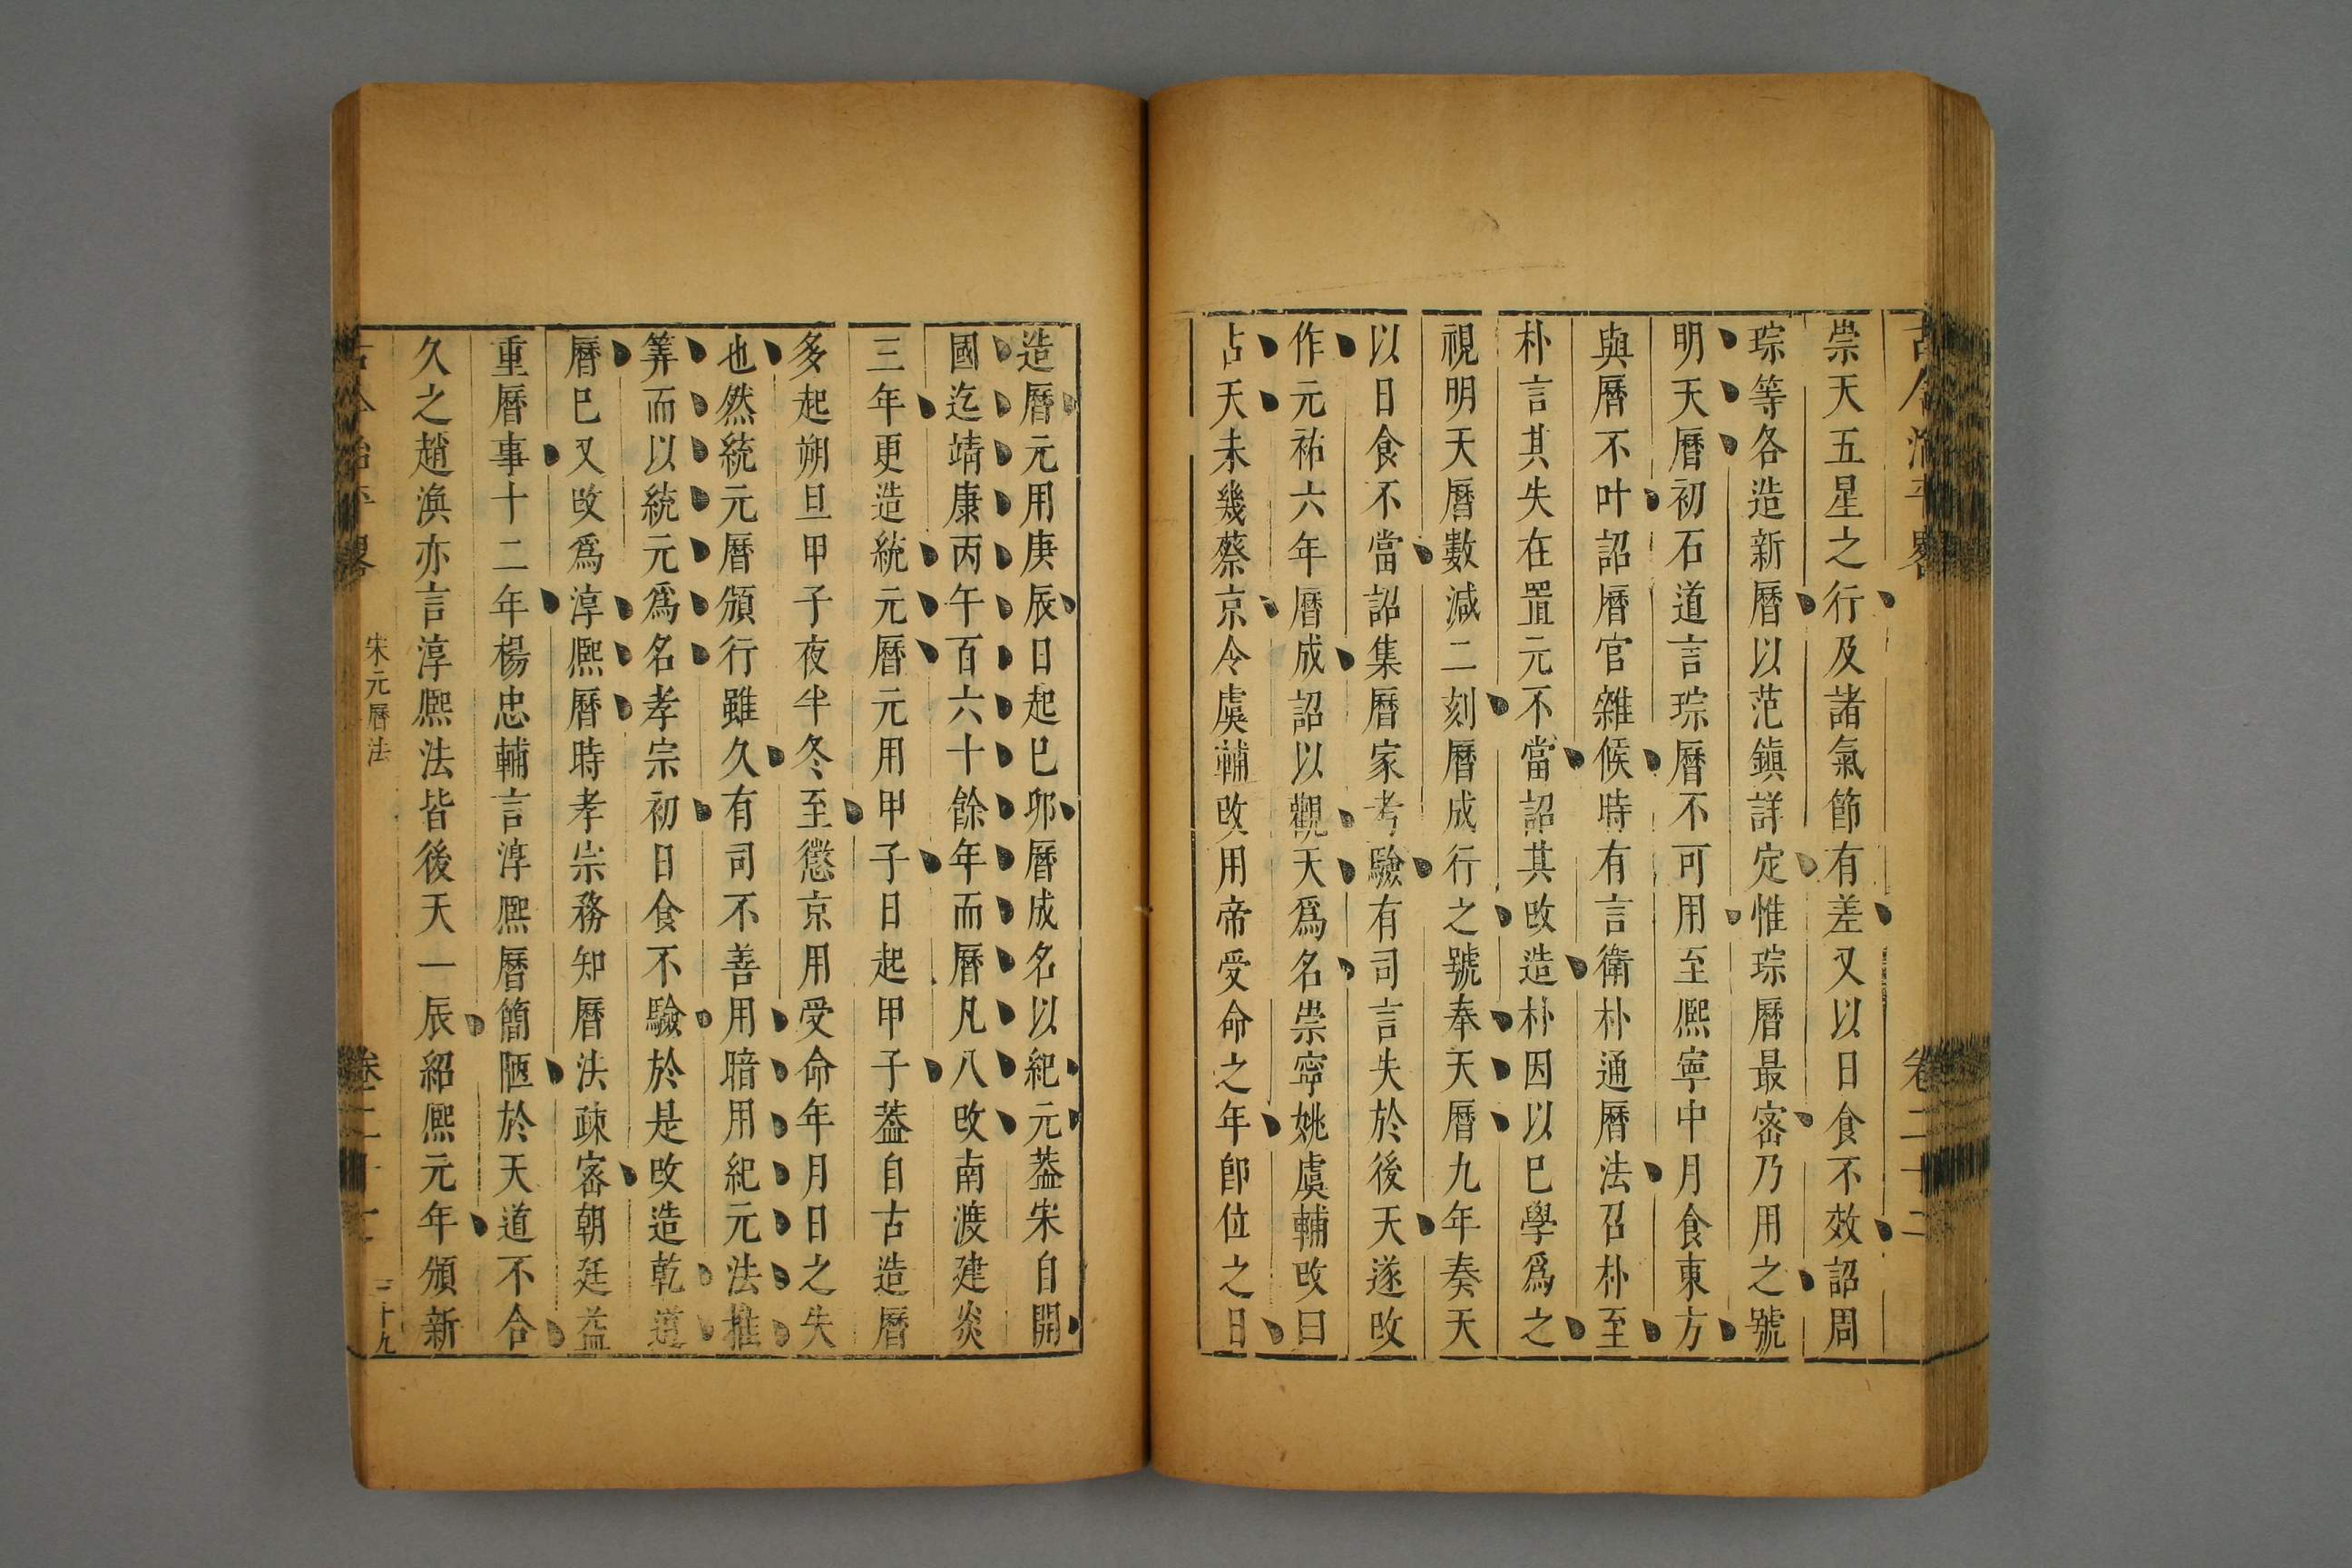 崇天五星之行及諸氣節有差又以日食不效詔周
琮等各造新曆以范鎮詳定惟琮曆最宻乃用之號
明天曆初石道言琮曆不可用至熈寧中月食東方
與曆不叶詔曆官雜候時有言衛朴通曆法召朴至
朴言其失在置元不當詔其攺造朴因以巳學爲之
視明天曆數減二刻曆成行之號奉天曆九年奏天
以日食不當詔集曆家考驗有司言失於後天遂攺
作元祐六年曆成詔以觀天爲名崇寧姚虞輔攺曰
占天未幾蔡京令虞輔攺用帝受命之年卽位之日
造曆元用庚辰日起巳卯曆成名以紀元葢宋自開
國迄靖康丙午百六十餘年而曆凡八攺南渡建炎
三年更造統元曆元用甲子日起甲子葢自古造曆
多起朔旦甲子夜半冬至懲京用受命年月日之失
也然統元曆頒行雖久有司不善用暗用紀元法推
筭而以統元爲名孝宗初日食不驗於是攺造乾道
曆巳又攺爲淳熈曆時孝宗務知曆法疎宻朝廷益
重曆事十二年楊忠輔言淳熈曆簡陋於天道不合
久之趙渙亦言淳熈法皆後天一辰紹熈元年頒新
宋元曆法
三十九